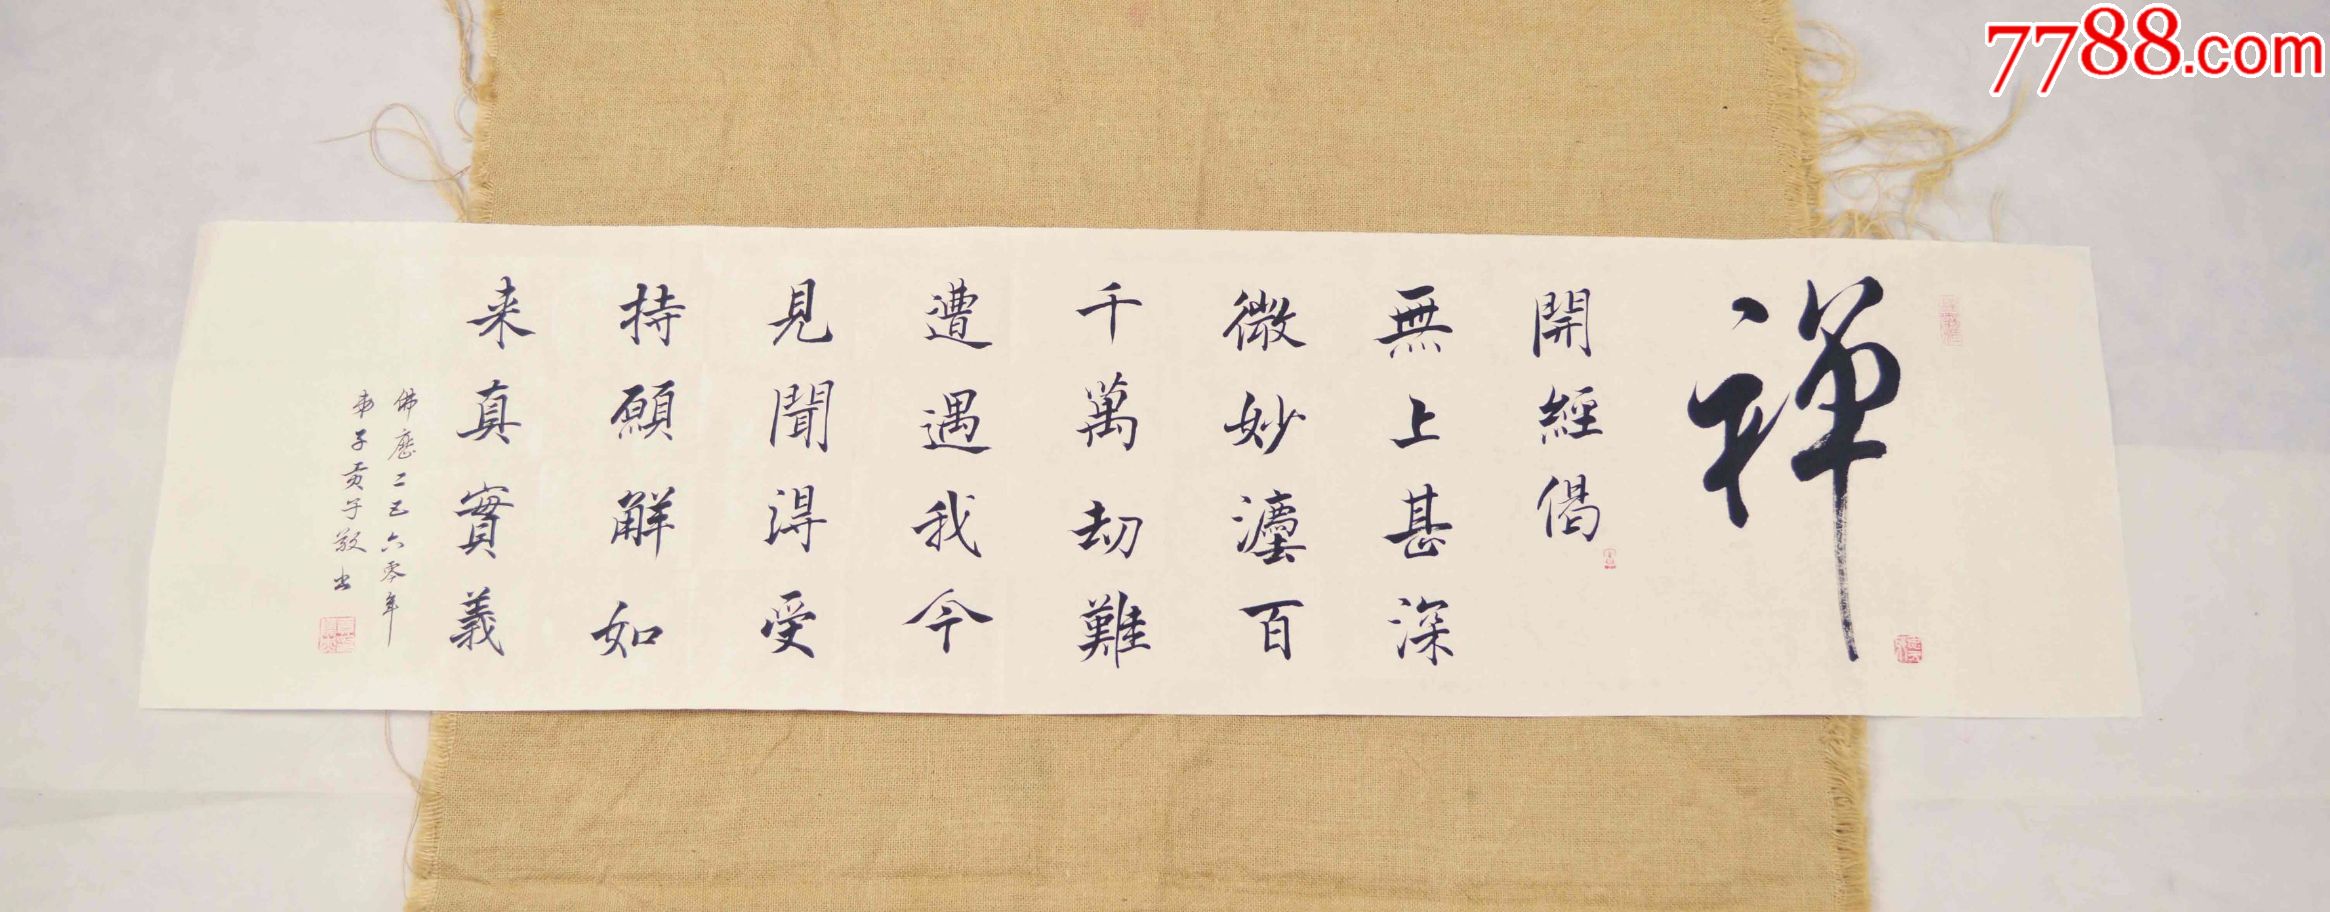 禪
開經偈
無上甚深
微妙灋百
千萬劫難
遭遇我今
見聞得受
持願解如
来真實義
佛歷二五六零年
弟子敬书
7788.com